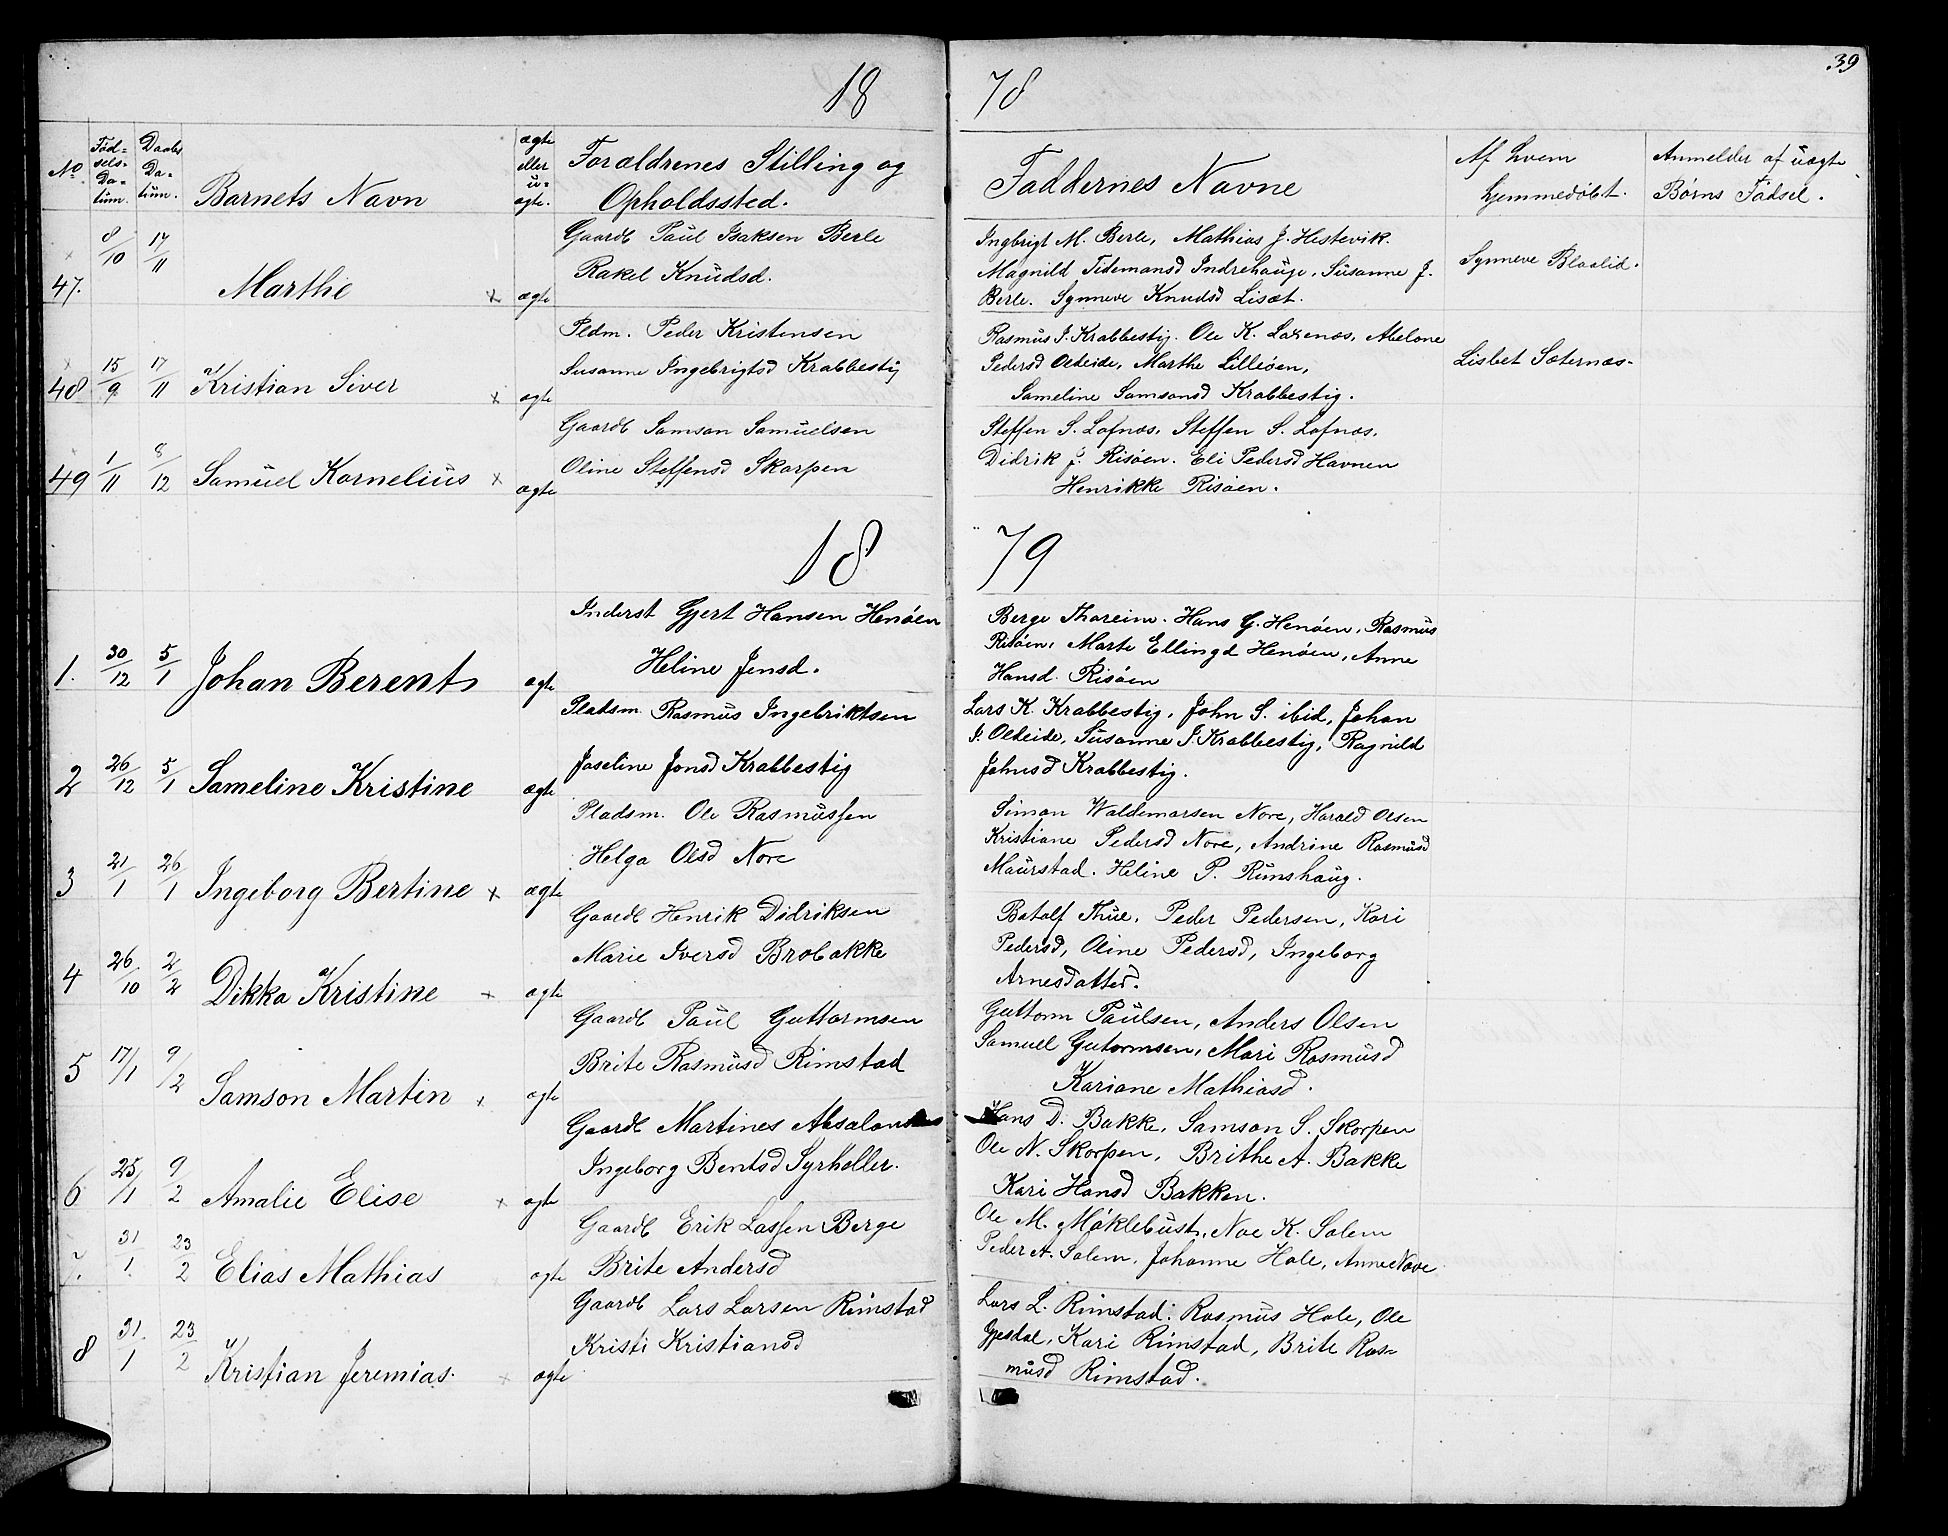 39
18 78
No
Fød=
sels-
Da=
tum.
Daabs
Da=
tum.
Barnets Navn
ægte
eller
u=
ægte.
Forældrenes Stilling og
Opholdssted.
Faddernes Navne
Af hvem
hjemmedøbt.
Anmelder af uægte
Børns Fødsel.
47. 8/10 17/11 Marthe × ægte
Gaardb Paul Isaksen Berle
Rakel Knudsd.
Ingbrigt M. Berle, Mathias J. Hestevik.
Magnild Tidemansd Indrehauge, Susanne J.
Berle. Synneve Knudsd Lisæt.
Synneve Blaalid.
48 15/9 17/11 Kristian Siver × ægte
Pldm. Peder Kristensen
Susanne Ingebrigtsd Krabbestig
Rasmus I. Krabbestig. Ole K. Laxenæs, Abelone
Pedersd Oldeide, Marthe Lilleøen,
Sameline Samsonsd Krabbestig.
Lisbet Sæternæs-
49 1/11 8/12 Samuel Kornelius × ægte
Gaardb Samson Samuelsen
Oline Steffensd Skarpen
Steffen S. Lofnæs, Steffen S. Lofnæs,
Didrik J. Risøen. Eli Pedersd Havnen
Henrikke Risøen.
18 79
1. 30/12 5/1 Johan Berent ægte
Inderst Gjert Hansen Henøen
Heline Jensd.
Berge Thoreim. Hans G. Henøen, Rasmus
Risøen, Marte Ellingd Henøen, Anne
Hansd. Risøen
2 26/12 5/1 Sameline Kristine ægte
Pladsm. Rasmus Ingebriktsen
Joseline Jonsd Krabbestig
Lars K. Krabbestig, John S. ibid, Johan
I. Oldeide, Susanne I. Krabbestig, Ragnild
Johnsd Krabbestig.
3 21/1 26/1 Ingeborg Bertine × ægte
Pladsm. Ole Rasmussen
Helga Olsd Nore
Simon Waldemarsen Nore, Harald Olsen
Kristiane Pedersd Nore, Andrine Rasmusd
Maurstad. Heline P. Rimshaug.
4 26/10 2/2 Dikka Kristine × ægte
Gaardb Henrik Didriksen
Marie Iversd Brobakke
Botolf Thue, Peder Pedersen, Kari
Pedersd, Oline Pedersd, Ingeborg
Arnesdatter.
5 17/1 9/2 Samson Martin × ægte
Gaardb Paul Guttormsen
Brite Rasmusd Rimstad
Guttorm Paulsen, Anders Olsen
Samuel Gutormsen, Mari Rasmusd
Kariane Mathiasd.
6 25/1 9/2 Amalie Elise × ægte
Gaardb Martines Absalonsen
Ingeborg Bentsd Syrheller.
Hans D. Bakke, Samson S. Skorpen
Ole N. Skorpen, Brithe A. Bakke
Kari Hansd Bakken.
7. 31/1 23/2 Elias Mathias ægte
Gaardb Erik Lassen Berge
Brite Andersd
Ole M. Møklebust, Noe K. Solem
Peder A. Solem, Johanne Hole, Anne Nave
8 31/1 23/2 Kristian Jeremias. × ægte
Gaardb Lars Larsen Rimstad
Kristi Kristiansd
Lars L. Rimstad. Rasmus Hole, Ole
Gjesdal, Kari Rimstad, Brite Ras=
musd Rimstad.